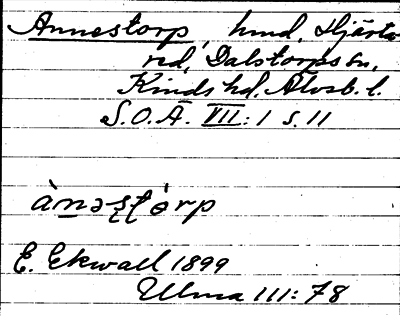 Annestorp, hmd, Hjärta-
red, Dalstorps sn,
Kinds hd, Älvsb. l.
S.O.Ä. VII:1 s. 11
E. Ekwall 1899
Ulma 111:78